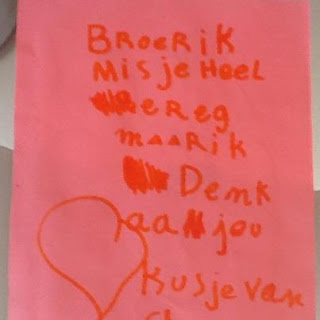 BROERIK
MISJEHOEL
EREG
MAARIK
DENK
aaN jou
Kusje van